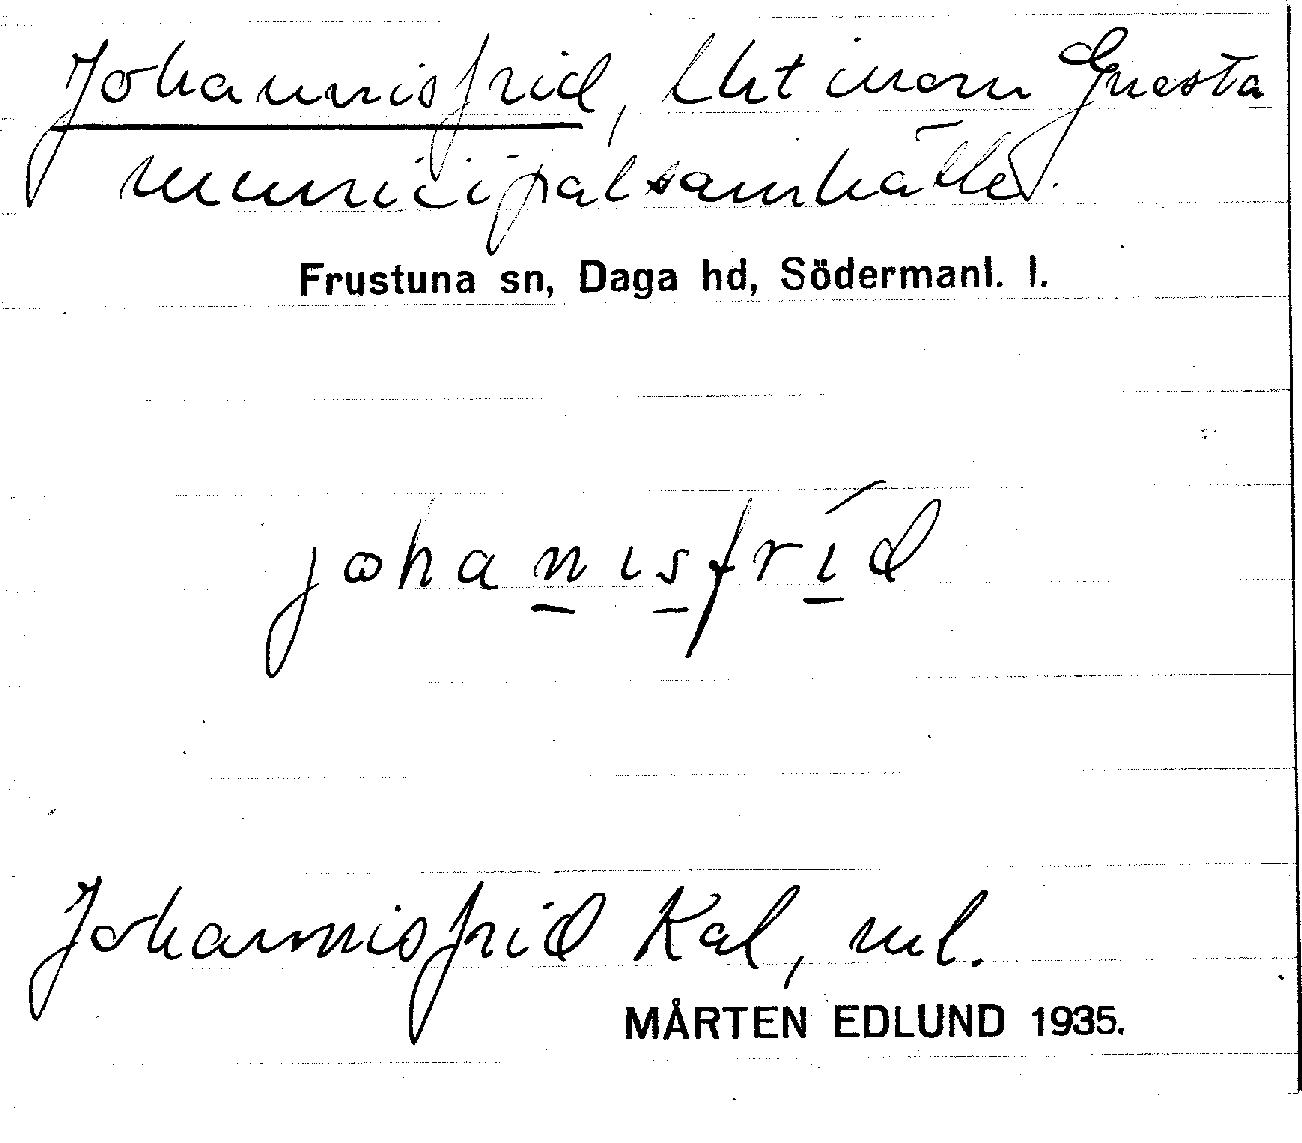 Johannisfrid, lht inom Gnesta
municipalsamhälle.
Frustuna sn, Daga hd, Södermanl. l.
johanısfríd
Johannisfrid Kal, ml.
MÅRTEN EDLUND 1935.